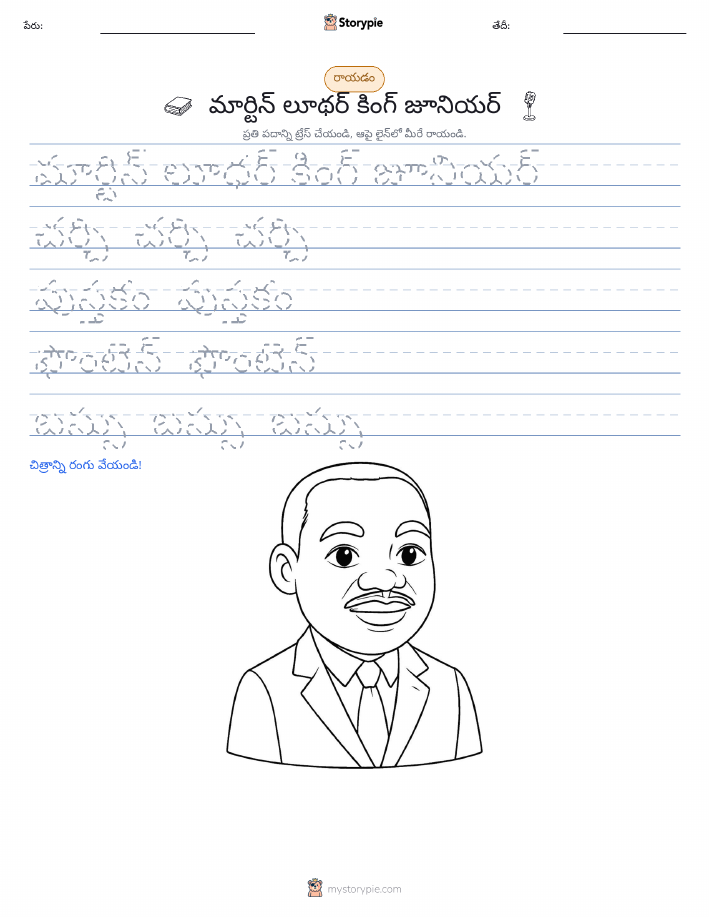 పేరు:
Storypie
తేదీ:
రాయడం
మార్టిన్ లూథర్ కింగ్ జూనియర్
ప్రతి పదాన్ని ట్రేస్ చేయండి, ఆపై లైన్‌లో మీరే రాయండి.
మార్టిన్ లూథర్ కింగ్ జూనియర్
చర్చి చర్చి చర్చి
పుస్తకం పుస్తకం
ఫౌంటెన్ ఫౌంటెన్
బస్సు బస్సు బస్సు
చిత్రాన్ని రంగు వేయండి!
mystorypie.com